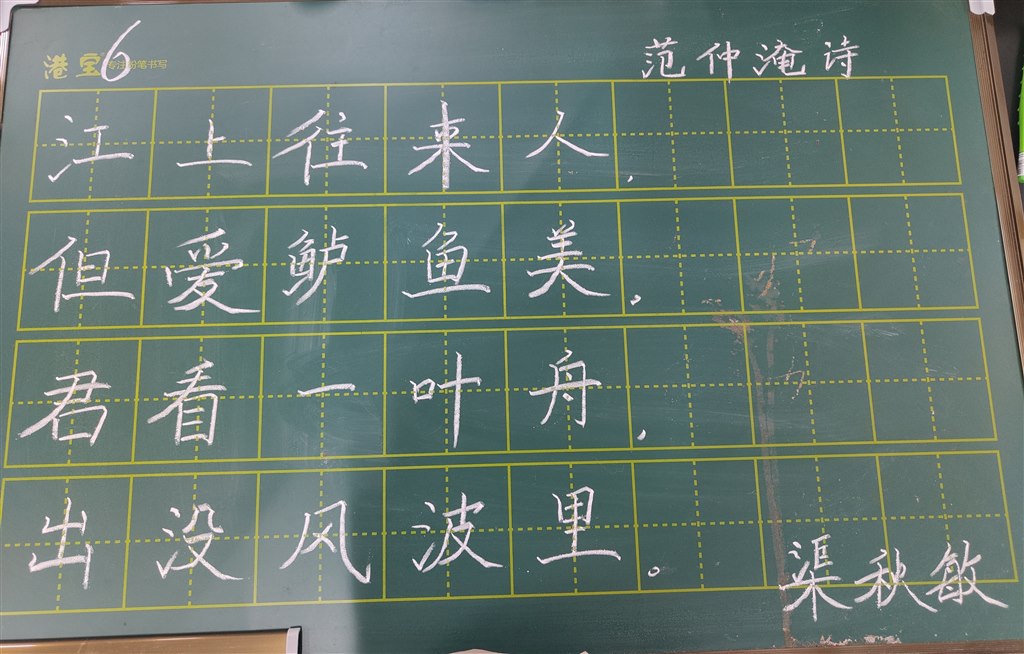 港宝 专注粉笔书写
6
范仲淹诗
江上往来人，
但爱鲈鱼美，
君看一叶舟，
出没风波里。
渠秋敏